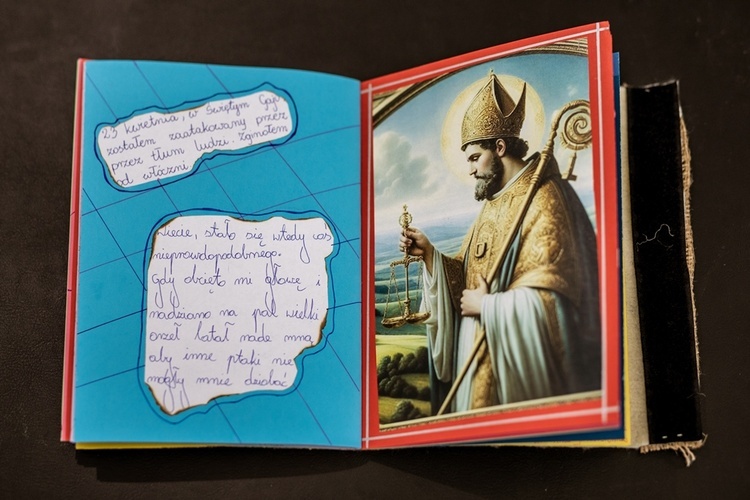 23 kwietnia, w Świętym Gaju
zostałem zaatakowany przez
przez tłum ludzi. Zginołem
od włóczni
wiecie, stało się wtedy coś
nieprawdopodobnego.
Gdy obcięto mi głowę i
nadziano na pal wielki
orzeł latał nade mną
aby inne ptaki nie
mogły mnie dziobać